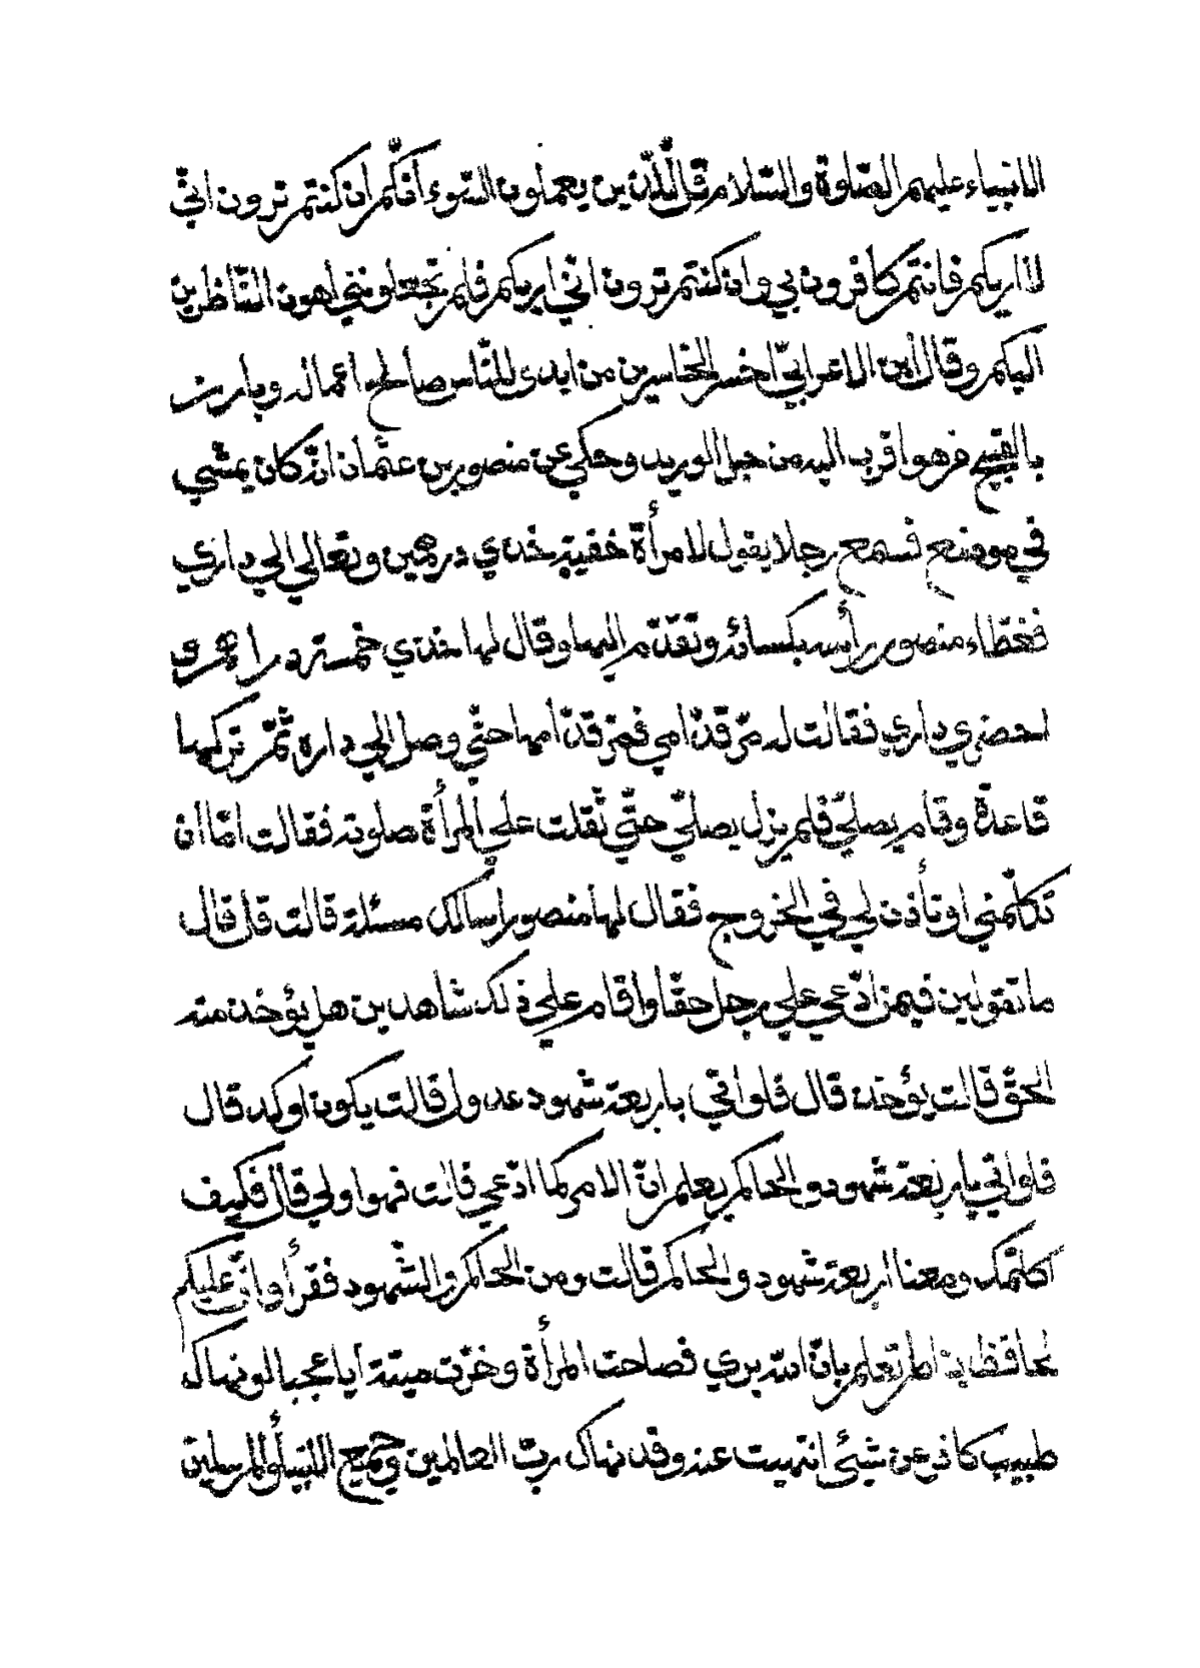 الانبياء عليهم الصلوة والسّلام قال للّذين يعملون السّوء أنكّم ان كنتم ترون انّي
لا اريكم فانتم كافرون بي وان كنتم ترون انّي اريكم فلم تجعلونني اهون النّاظرين
اليكم وقال ابن الاعرابيّ اخسر الخاسرين من ابدى للنّاس صالح اعماله وبارز
بالقبيح من هو اقرب اليه من حبل الوريد وحكي عن منصور بن عثمان انّه كان يمشي
في موضع فسمع رجلا يقول لامرأة خفية خذي درهمين وتعالي الي داري
فغطّاء منصور رأسه بكسائه وتقدّم اليها وقال لها خذي خمسة دراهم و
احضري داري فقالت له مرّ قدّامي فمرّ قدّامها حتّي وصل الي داره ثمّ تركها
قاعدة وقام يصلّي فلم يزل يصلّي حتّي ثقلت علي المرأة صلوته فقالت امّا ان
تكلّمني او تأذن لي في الخروج فقال لها منصور اسالك مسئلة قالت قل قال
ما تقولين فيمن ادّعي علي رجل حقّا واقام علي ذلك شاهدين هل يؤخذ منه
الحقّ قالت يؤخذ قال فلو اتي باربعة شهود عدول قالت يكون اوكد قال
فلو اتي باربعة شهود والحاكم يعلم انّ الامر كما ادّعي قالت فهو اولي قال فكيف
اكلّمك ومعنا اربعة شهود والحاكم قالت ومن الحاكم والشّهود فقرأ وانّ عليكم
لحافظين الم تعلم بانّ الله يري فصاحت المرأة وخرّت ميتة أيا عجبا لو نهاك
طبيب كافر عن شيئ انتهيت عنه وقد نهاك ربّ العالمين وجميع الانبياء والمرسلين